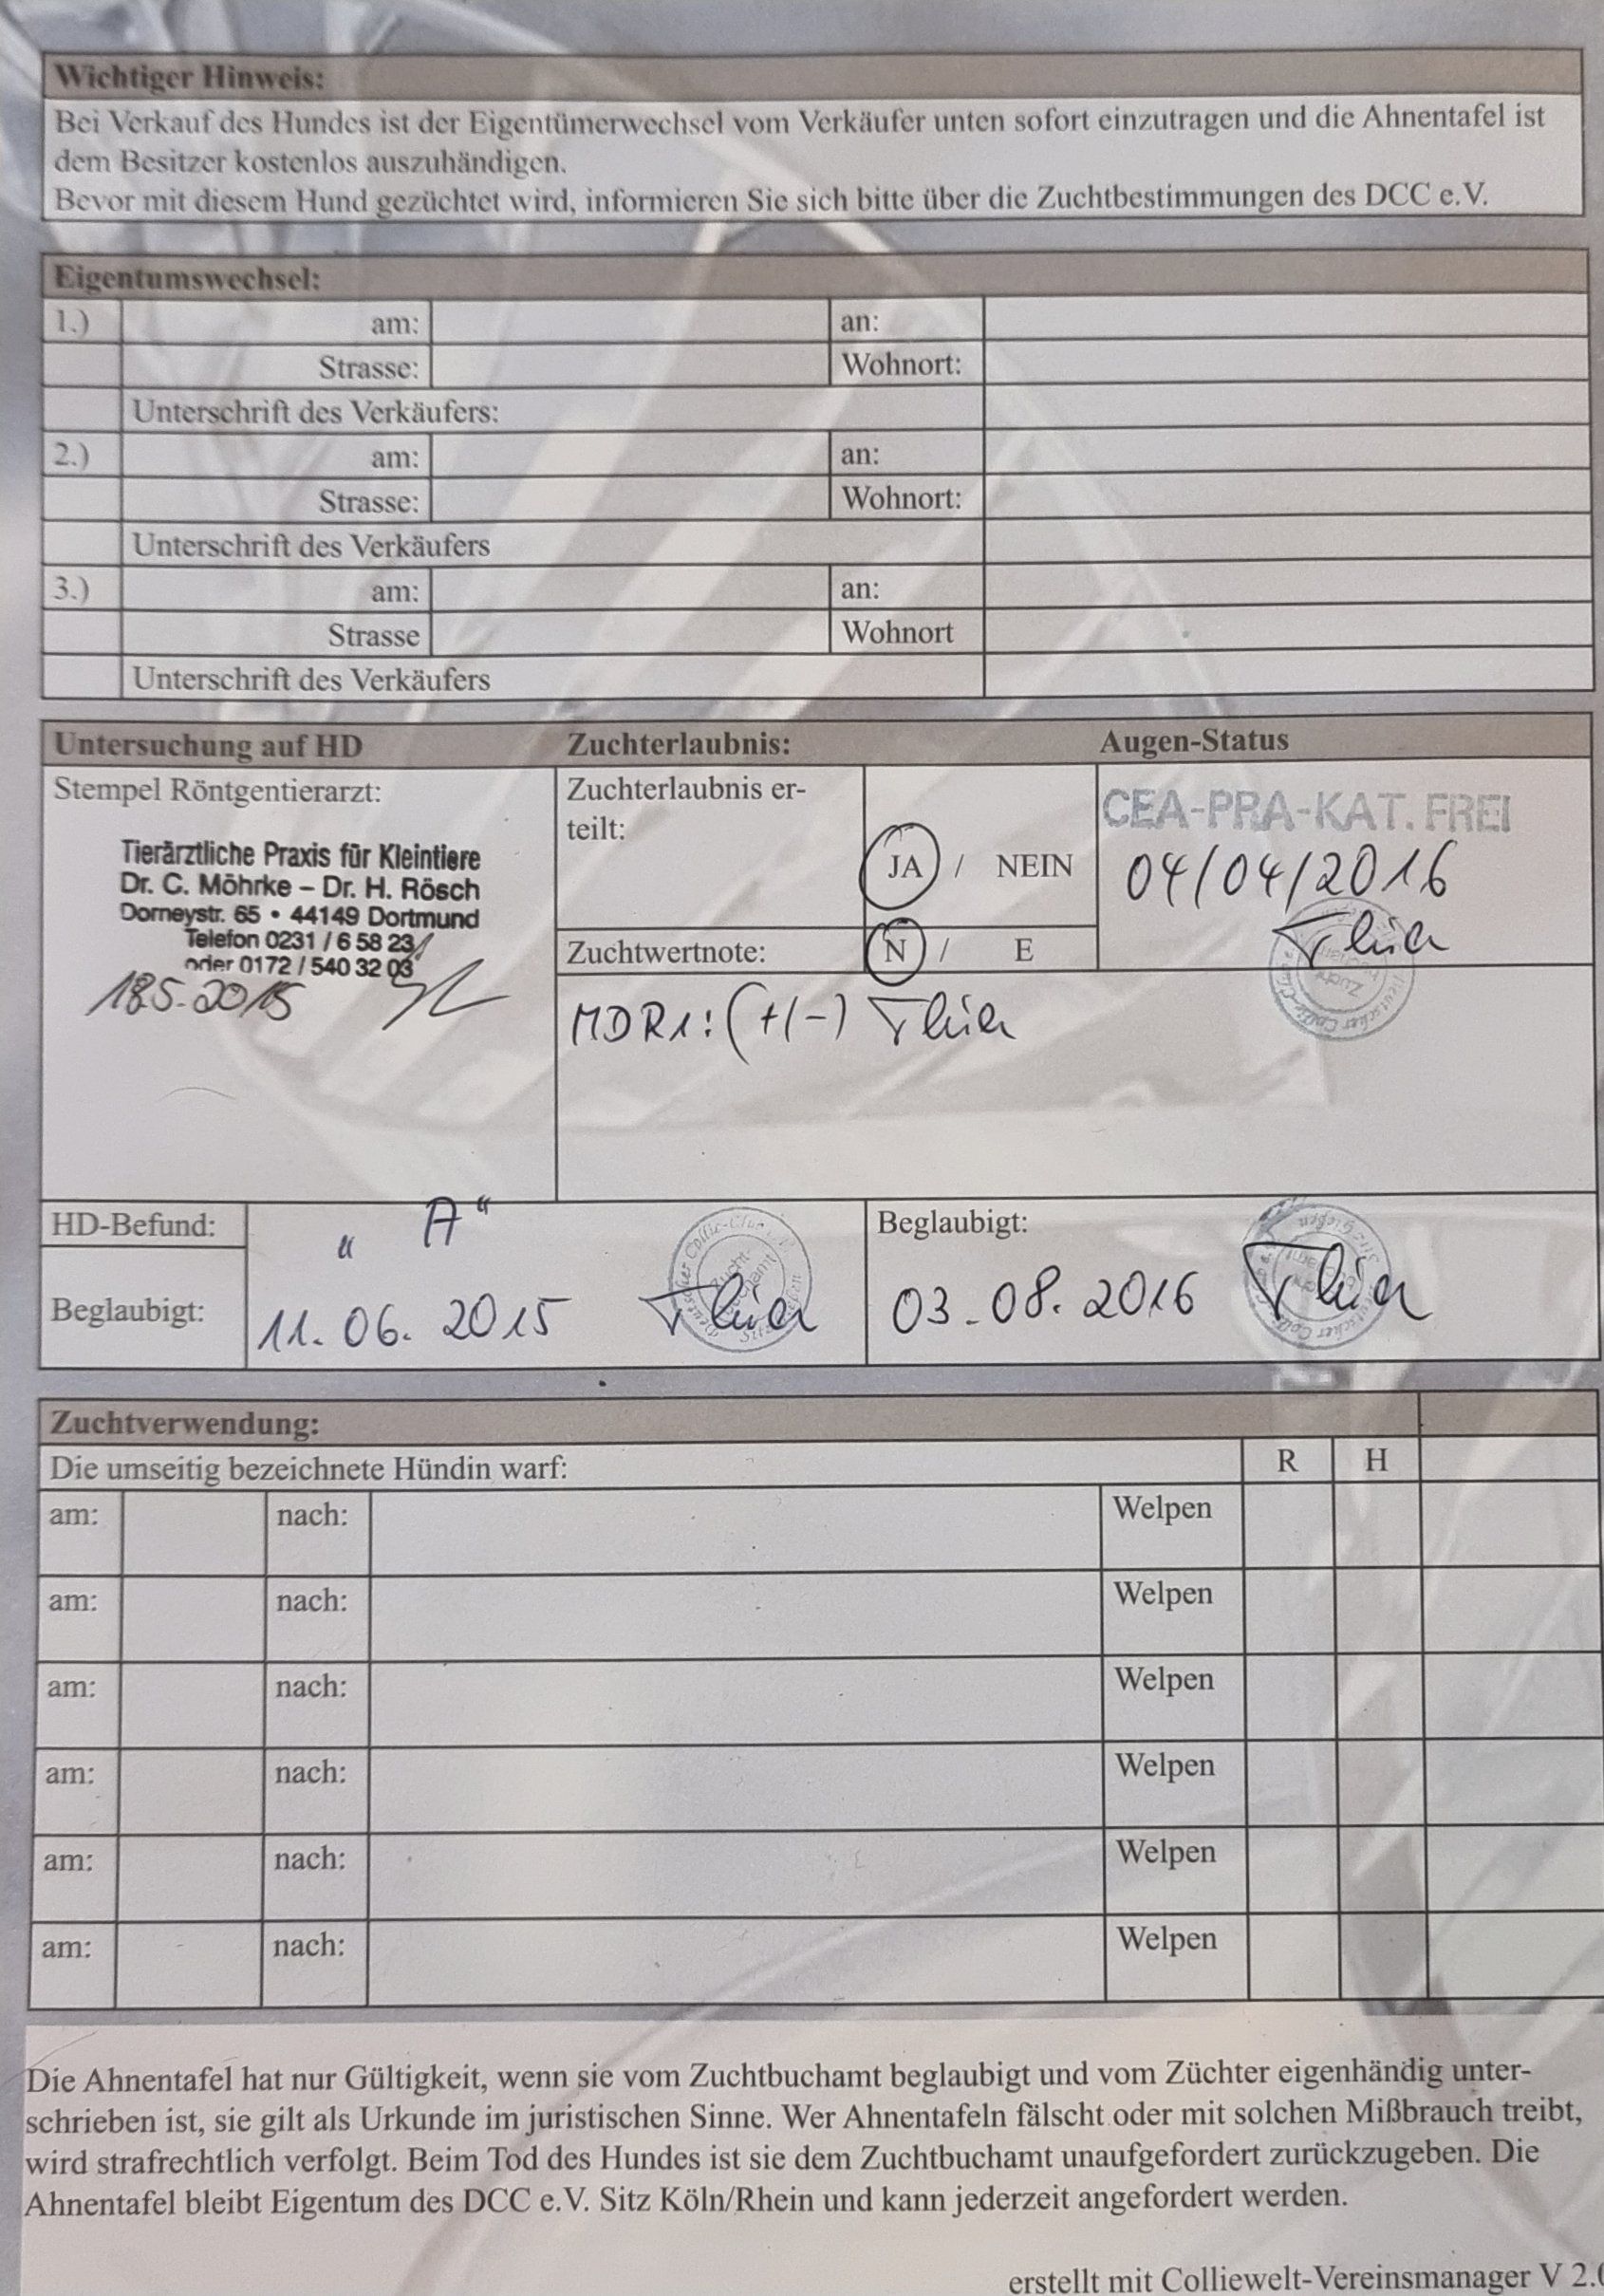 Wichtiger Hinweis:
Bei Verkauf des Hundes ist der Eigentümerwechsel vom Verkäufer unten sofort einzutragen und die Ahnentafel ist
dem Besitzer kostenlos auszuhändigen.
Bevor mit diesem Hund gezüchtet wird, informieren Sie sich bitte über die Zuchtbestimmungen des DCC e.V.
Eigentumswechsel:
1.) am: an:
Strasse: Wohnort:
Unterschrift des Verkäufers:
2.) am: an:
Strasse: Wohnort:
Unterschrift des Verkäufers
3.) am: an:
Strasse Wohnort
Unterschrift des Verkäufers
Untersuchung auf HD Zuchterlaubnis: Augen-Status
Stempel Röntgentierarzt:
Tierärztliche Praxis für Kleintiere
Dr. C. Möhrke – Dr. H. Rösch
Dorneystr. 65 • 44149 Dortmund
Telefon 0231 / 6 58 23
oder 0172 / 540 32 03
18.5.2015
Zuchterlaubnis er-
teilt:
JA / NEIN
Zuchtwertnote: N / E
MDR1: (+/-)
CEA-PRA-KAT. FREI
04/04/2016
HD-Befund: "A"
Beglaubigt: 11.06.2015
Beglaubigt:
03.08.2016
Zuchtverwendung:
Die umseitig bezeichnete Hündin warf: R H
am: nach: Welpen
am: nach: Welpen
am: nach: Welpen
am: nach: Welpen
am: nach: Welpen
am: nach: Welpen
Die Ahnentafel hat nur Gültigkeit, wenn sie vom Zuchtbuchamt beglaubigt und vom Züchter eigenhändig unter-
schrieben ist, sie gilt als Urkunde im juristischen Sinne. Wer Ahnentafeln fälscht oder mit solchen Mißbrauch treibt,
wird strafrechtlich verfolgt. Beim Tod des Hundes ist sie dem Zuchtbuchamt unaufgefordert zurückzugeben. Die
Ahnentafel bleibt Eigentum des DCC e.V. Sitz Köln/Rhein und kann jederzeit angefordert werden.
erstellt mit Colliewelt-Vereinsmanager V 2.